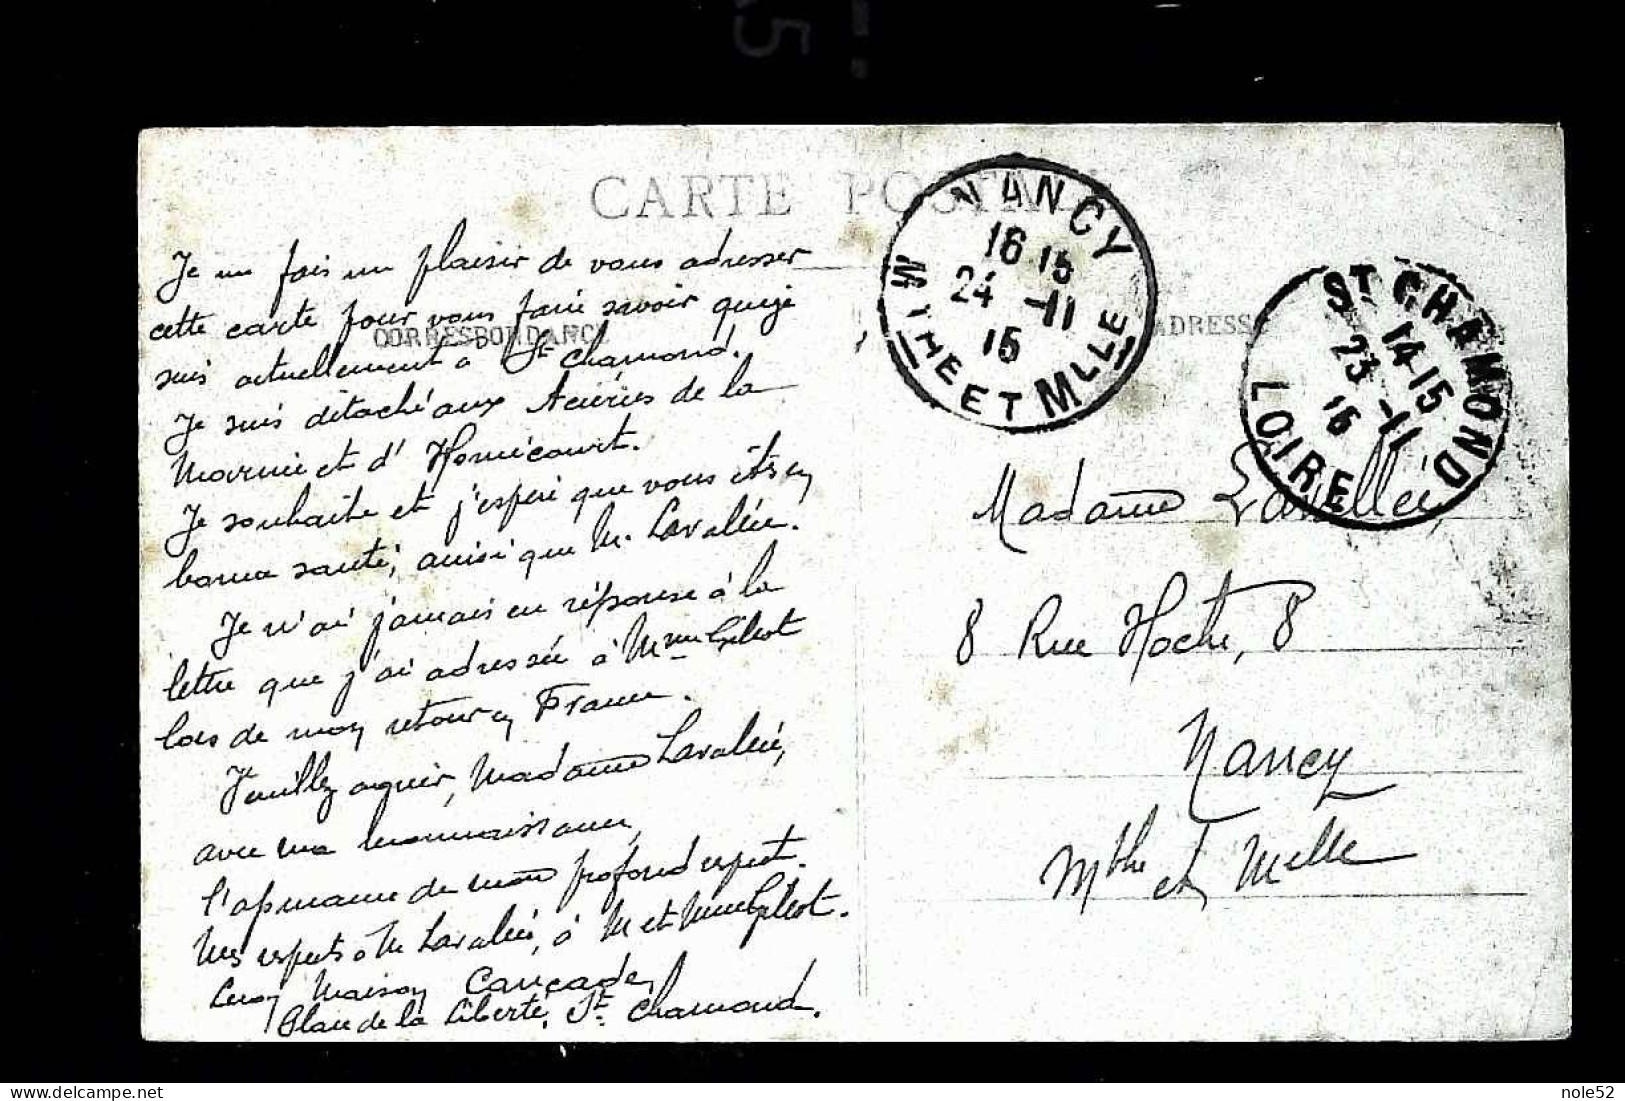 CARTE POSTALE
CORRESPONDANCE
ADRESSE
Je me fais un plaisir de vous adresser
cette carte pour vous faire savoir que je
suis actuellement à St Chamond.
Je suis détaché aux Aciéries de la
Marine et d'Homécourt.
Je souhaite et j'espère que vous êtes en
bonne santé, ainsi que M. Lavallée.
Je n'ai jamais eu réponse à la
lettre que j'ai adressée à Mme
lors de mon retour en France.
Veuillez agréer, Madame Lavallée,
avec ma reconnaissance,
l'assurance de mon profond respect.
Mes respects à M Lavallée, à M et Mme
Leroy Maison Cancade,
Place de la Liberté, St Chamond.
NANCY
16 15
24 -11
15
MTHE ET MLLE
ST CHAMOND
14 15
23 -11
15
LOIRE
Madame Lavallée,
8 Rue Hoche, 8
Nancy
Mthe et Melle
nole52